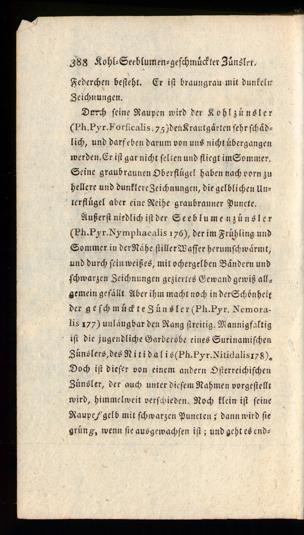 388 Kohl-Seeblumen-geschmückter Zünsler.
Federchen besteht. Er ist braungrau mit dunkeln
Zeichnungen.
Durch seine Raupen wird der Kohlzünsler
(Ph.Pyr.Forficalis.75) den Krautgärten sehr schäd-
lich, und darf eben darum von uns nicht übergangen
werden. Er ist gar nicht selten und fliegt im Sommer.
Seine graubraunen Oberflügel haben nach vorn zu
hellere und dunklere Zeichnungen, die gelblichen Un-
terflügel aber eine Reihe graubrauner Puncte.
Äußerst niedlich ist der Seeblumenzünsler
(Ph.Pyr.Nymphaealis 176), der im Frühling und
Sommer in der Nähe stiller Wasser herumschwärmt,
und durch sein weißes, mit ochergelben Bändern und
schwarzen Zeichnungen geziertes Gewand gewiß all-
gemein gefällt. Aber ihm macht noch in der Schönheit
der geschmückte Zünsler (Ph.Pyr. Nemora-
lis 177) unläugbar den Rang streitig. Mannigfaltig
ist die jugendliche Garderobe eines Surinamischen
Zünslers, des Nitidalis (Ph.Pyr.Nitidalis 178).
Doch ist dieser von einem andern Österreichischen
Zünsler, der auch unter diesem Nahmen vorgestellt
wird, himmelweit verschieden. Noch klein ist seine
Raupe gelb mit schwarzen Puncten; dann wird sie
grün, wenn sie ausgewachsen ist; und geht es end-